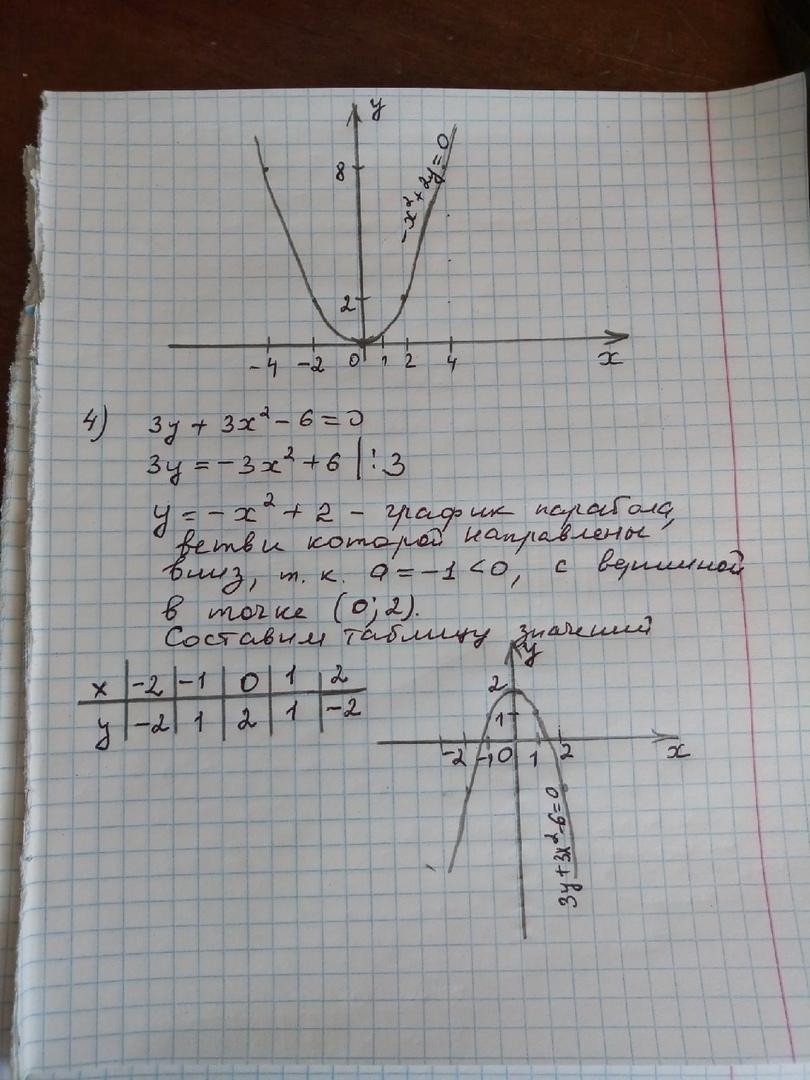 y
8
-x²+2y=0
2
-4 -2 0 1 2 4 x
4) 3y + 3x² - 6 = 0
3y = -3x² + 6 | : 3
y = -x² + 2 - график парабола,
ветви которой направлены
вниз, т. к. a = -1 < 0, с вершиной
в точке (0; 2).
Составим таблицу значений
y
x -2 -1 0 1 2
y -2 1 2 1 -2
2
1
-2 -1 0 1 2 x
3y+3x²-6=0